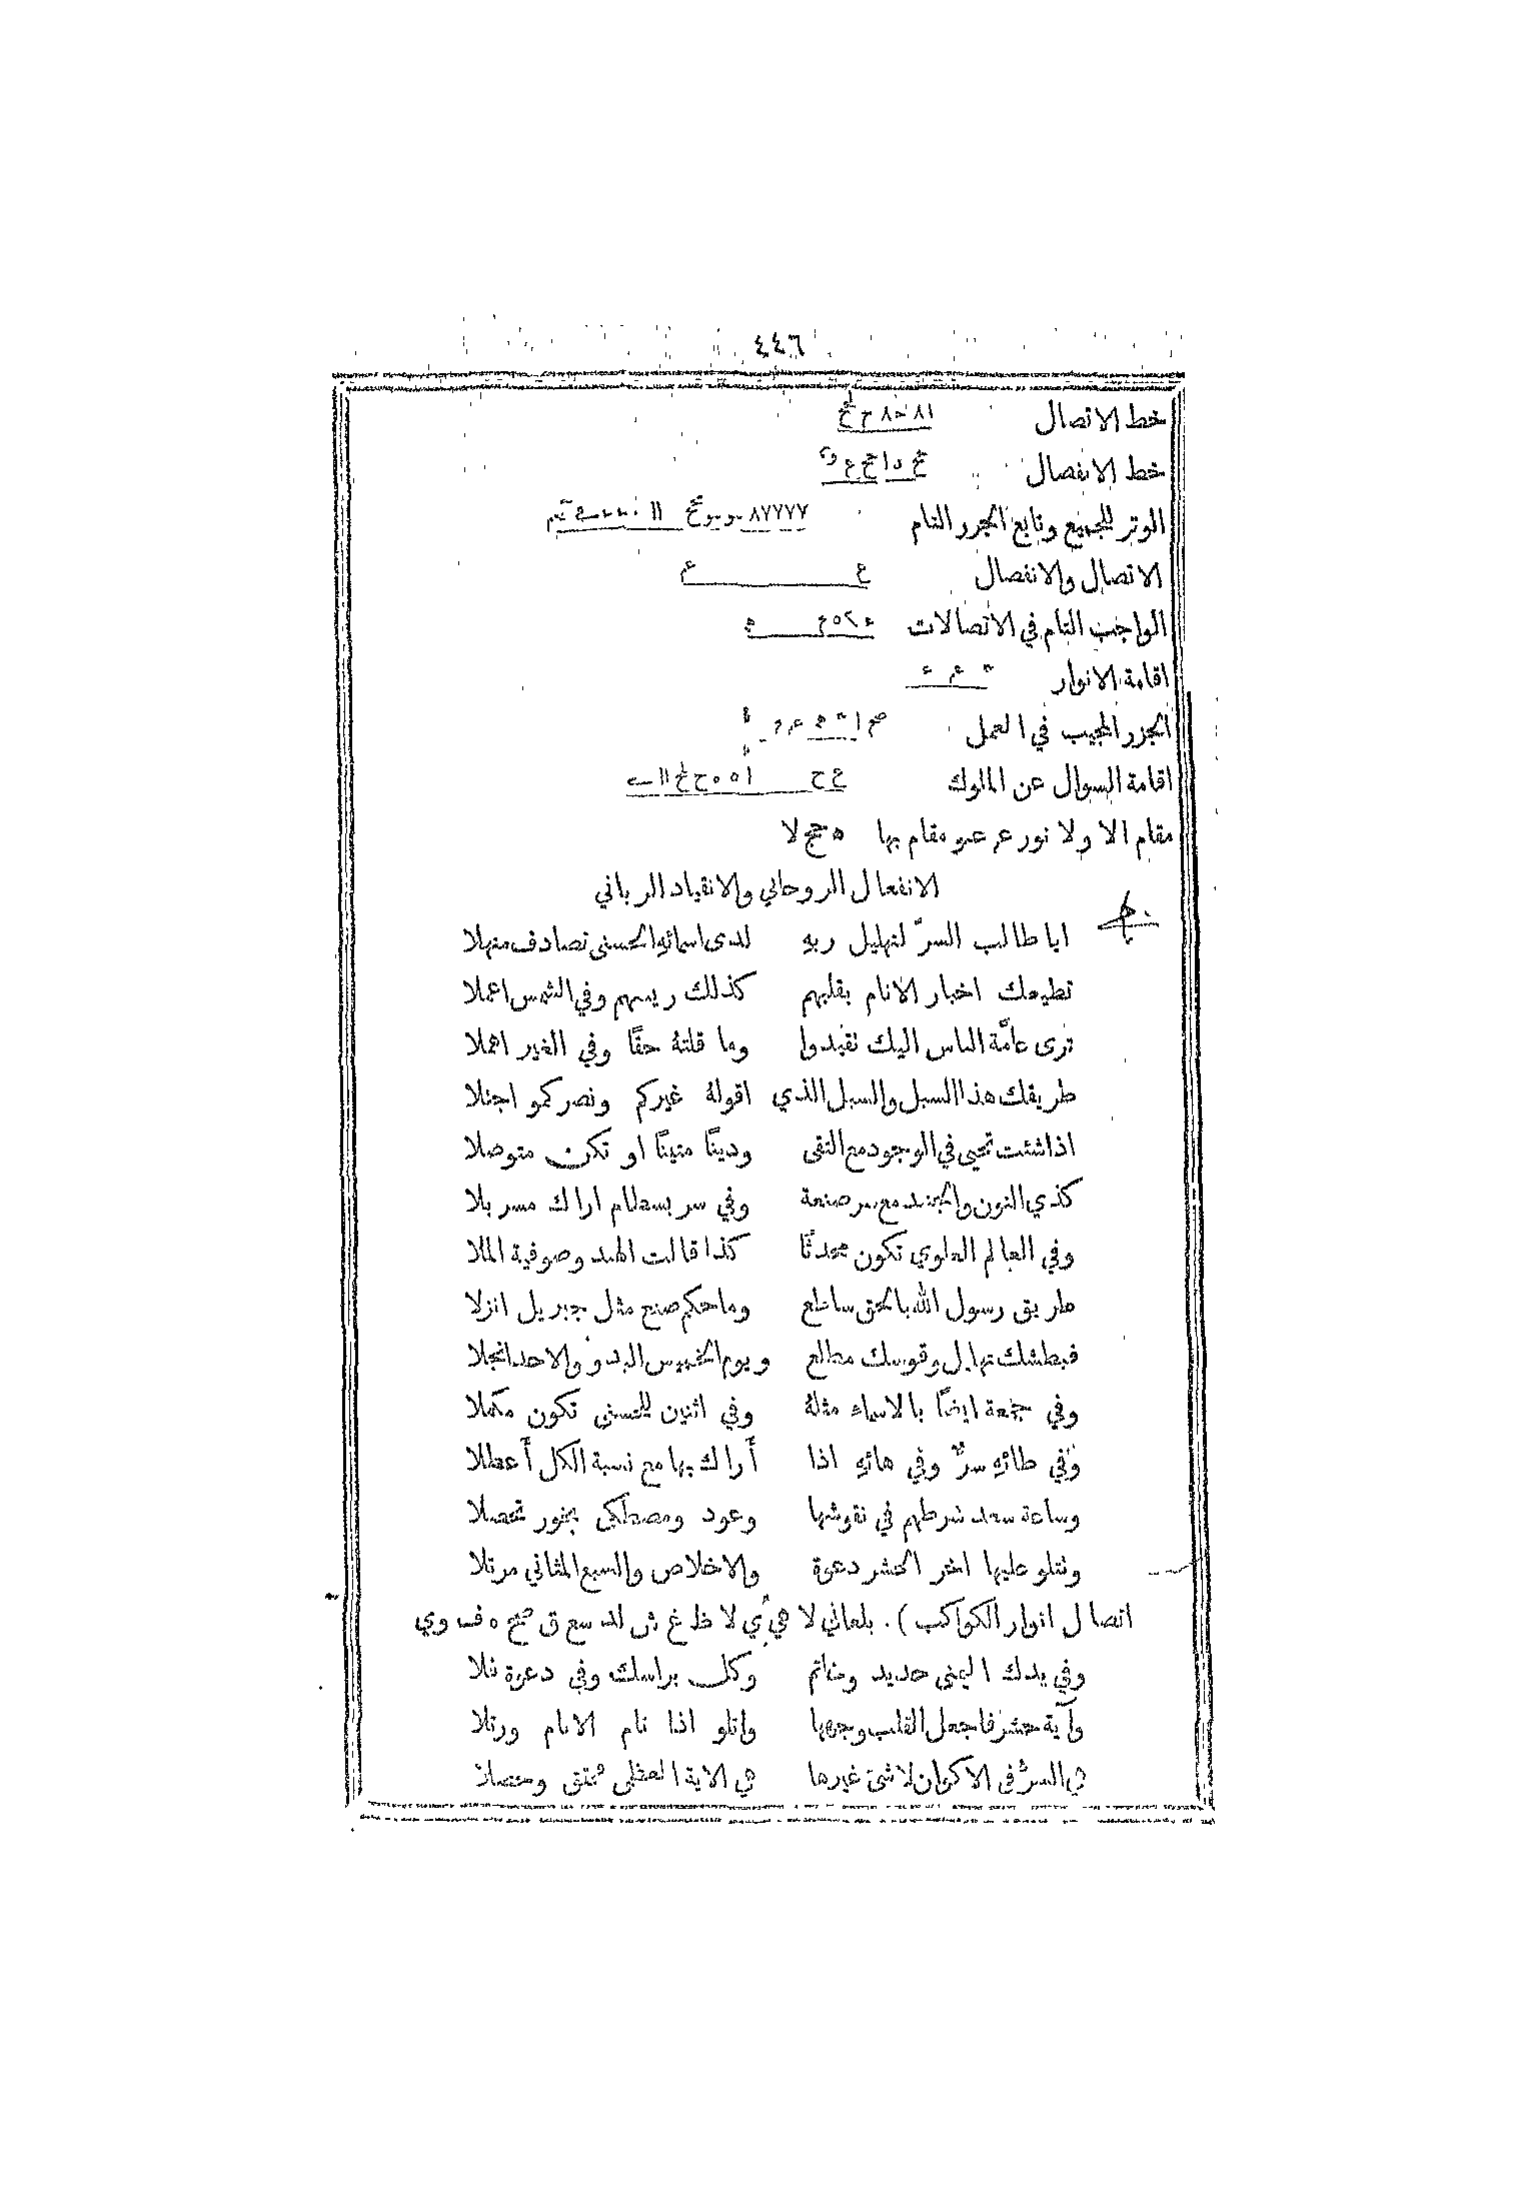 ٤٤٦
خط الاتصال
خط الانفصال
الوتر للجميع وتابع الجزر التام
الاتصال والانفصال ع ع
الواجب التام في الاتصالات
اقامة الانوار
الجزر المجيب في العمل
اقامة السوال عن الملوك
مقام الاولا نور مقام بها ه حج لا
الانفعال الروحاني والانقياد الرباني
ايا طالب السرّ لتهليل ربه لدى اسمائهِ الحسنى تصادف منهلا
تطيعك اخبار الانام بقلبهم كذلك ريسهم وفي الشمس اعملا
ترى عامّة الناس اليك تقيدوا وما قلتهُ حقًا وفي الغير اهملا
طريقك هذا السبل والسبل الذي اقولهُ غيركم ونصركمو اجتلا
اذا شئت تحيى في الوجود مع التقى ودينًا متينًا او تكن متوصلا
كذي النون والجنيد مع سر صنعة وفي سر بسطام اراك مسربلا
وفي العالم العلوي تكون محدثًا كذا قالت الهند وصوفية الملا
طريق رسول الله بالحق ساطع وما حكم صنع مثل جبريل انزلا
فبطشك تهليل وقوسك مطلع ويوم الخميس البدو والاحد انجلا
وفي جمعة ايضًا بالاسماء مثلهُ وفي اثنين للحسنى تكون مكملا
وفي طائهِ سرٌّ وفي هائهِ اذا أراك بها مع نسبة الكل أعطلا
وساعة سعد شرطهم في نقوشها وعود ومصطكى بخور تحصلا
وتتلو عليها اخر الحشر دعوة والاخلاص والسبع المثاني مرتلا
اتصال انوار الكواكب). بلعاني لا هي ي لا ظ غ ش لد سع ق صح ه ف وي
وفي يدك اليمنى حديد وخاتم وكل براسك وفي دعوة فلا
وآية حشر فاجعل القلب وجهها واتلو اذا نام الانام ورتلا
هي السرُّ في الاكوان لا شيء غيرها هي الاية العظمى فحقق وحصلا